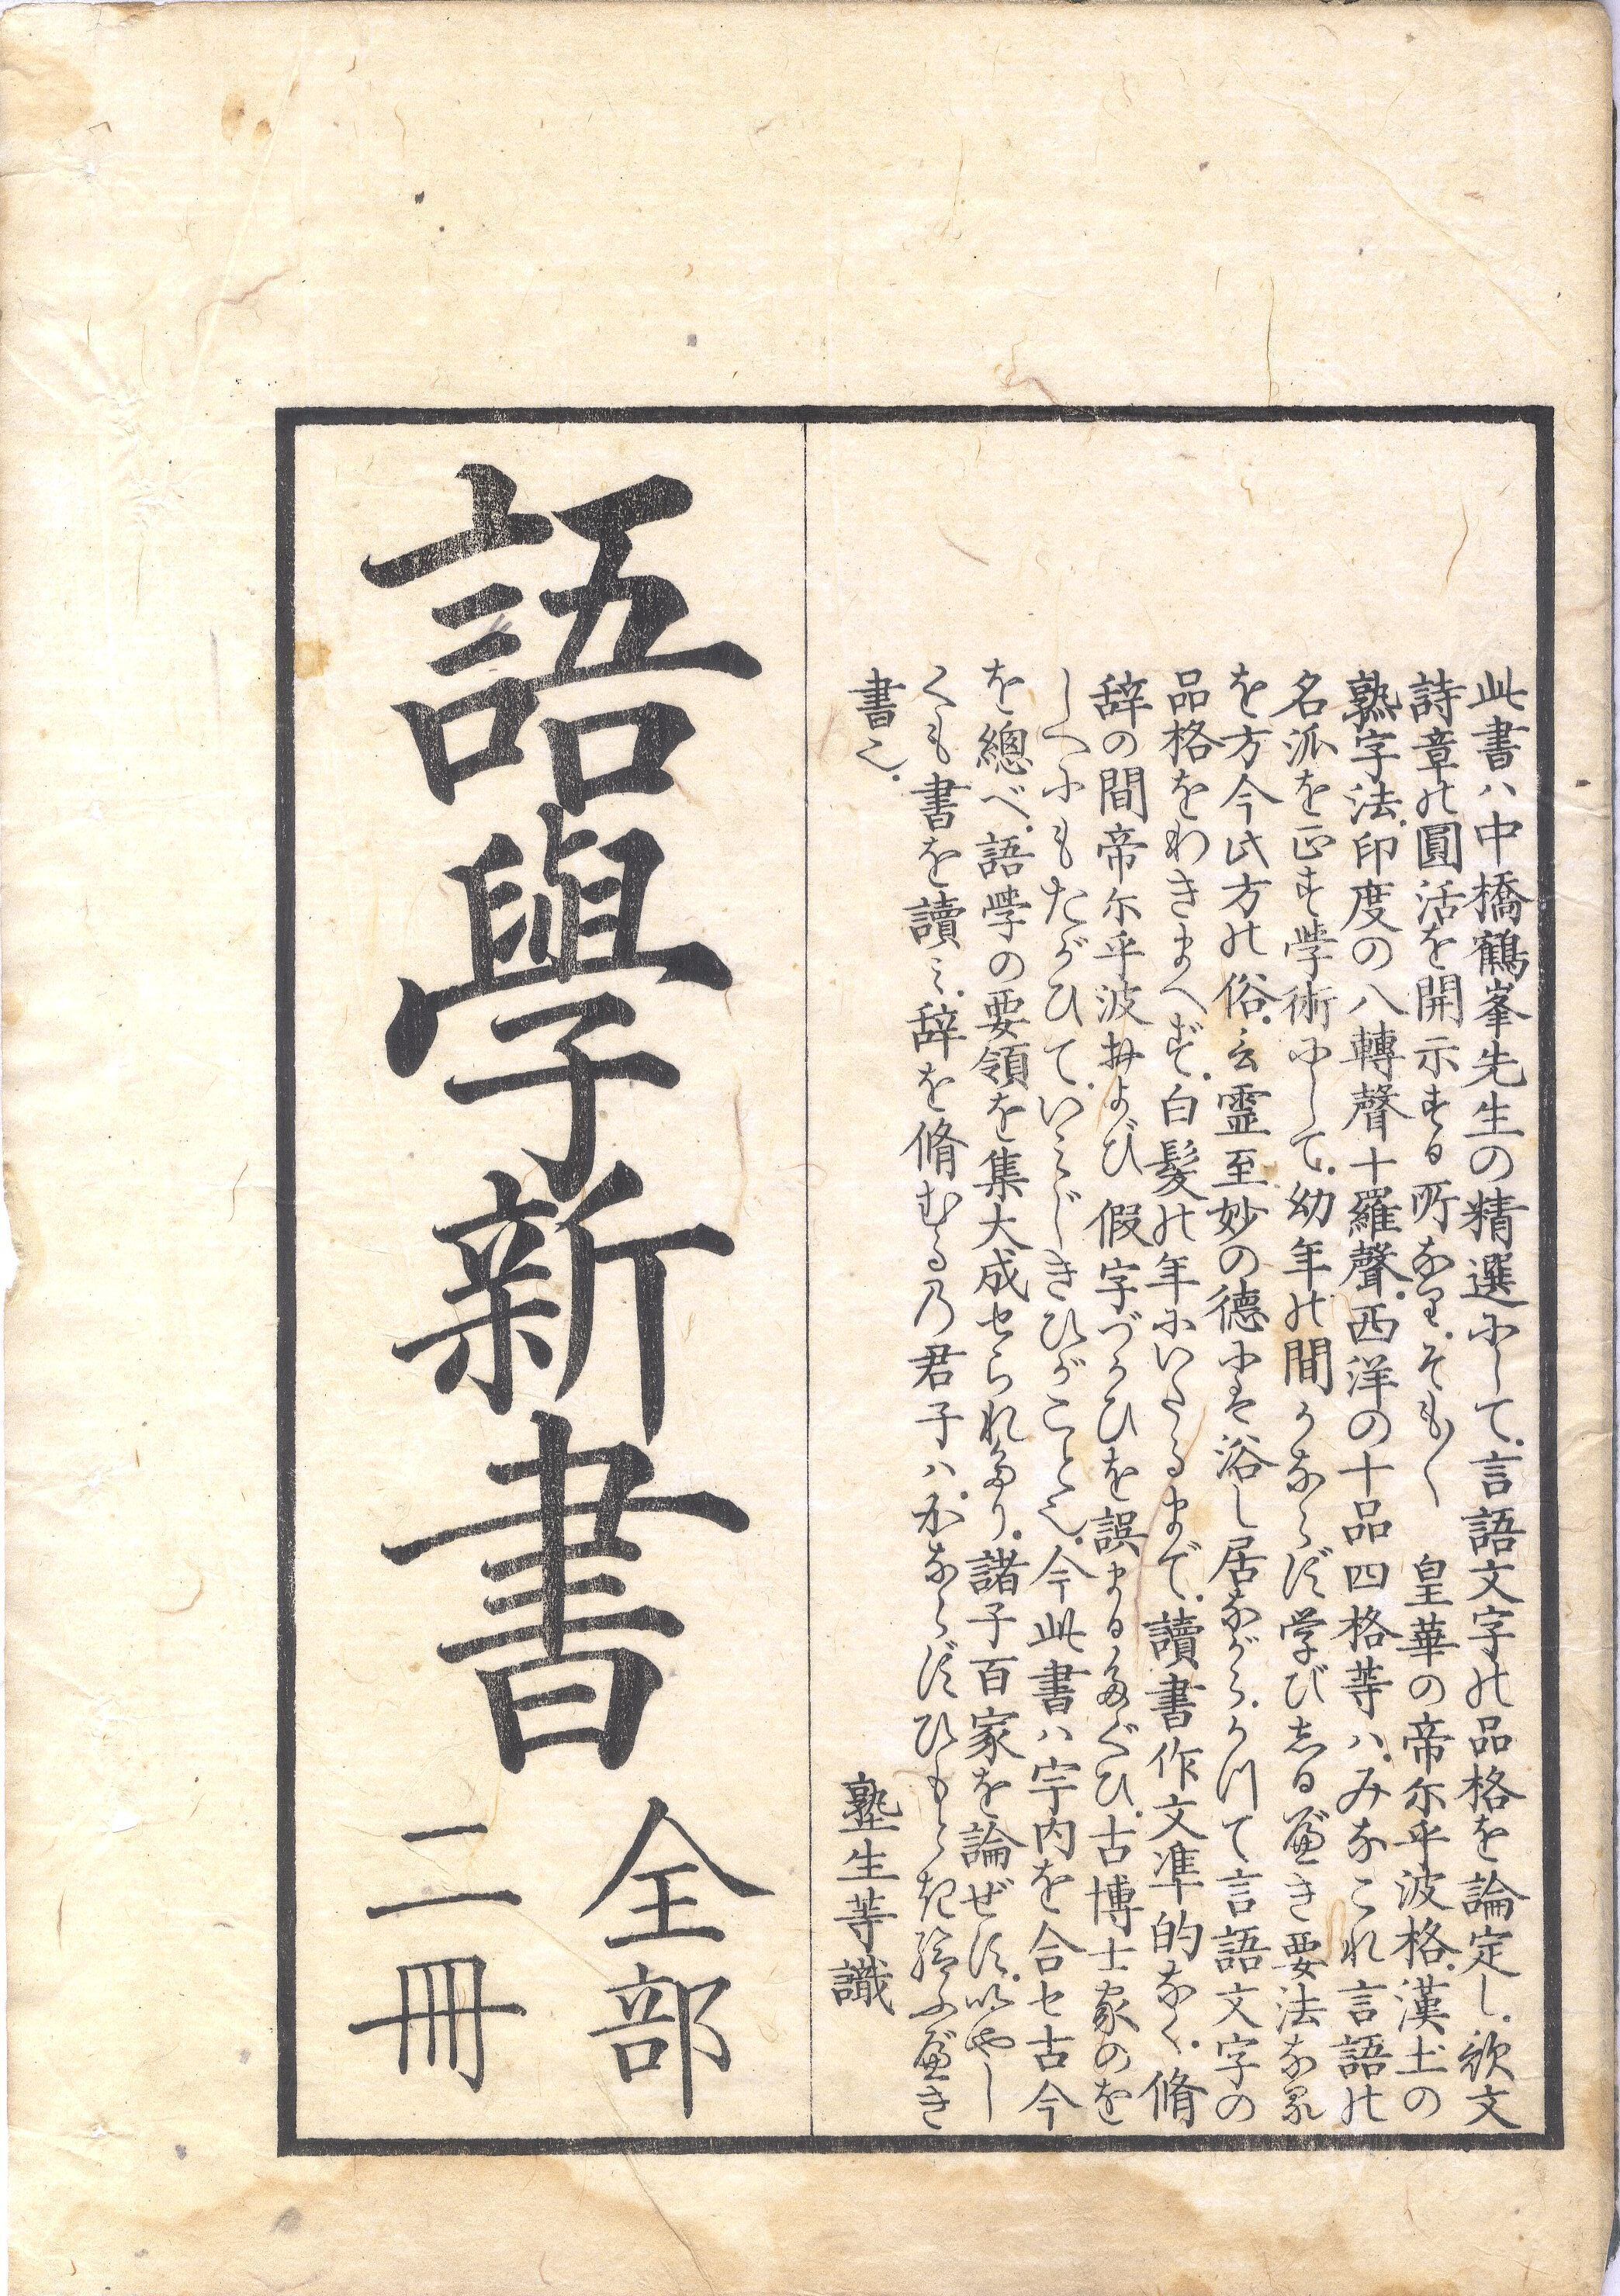 此書ハ中橋鶴峯先生の精選にして言語文字の品格を論定し歌文
詩章の圓活を開示する所なりそも〱　皇華の帝尓乎波格漢土の
熟字法印度の八轉聲十羅聲西洋の十品四格等ハみなこれ言語の
名派を正す學術にして幼年の間かならず学び志るべき要法なる
を方今此方の俗言霊至妙の德に浴し居ながらかつて言語文字の
品格をわきまへず白髮の年にいたるまで讀書作文準的なく脩
辞の間帝尓乎波およひ假字づかひを誤まるたぐひ古博士家のを
しへにもたがひていみじきひがこと也今此書ハ宇内を合セ古今
を總べ語學の要領を集大成せられたり諸子百家を論ぜすいやし
くも書を讀ミ辞を脩むる乃君子ハかならずひもとき給ふべき
書也
塾生等識
語學新書
全部
二冊